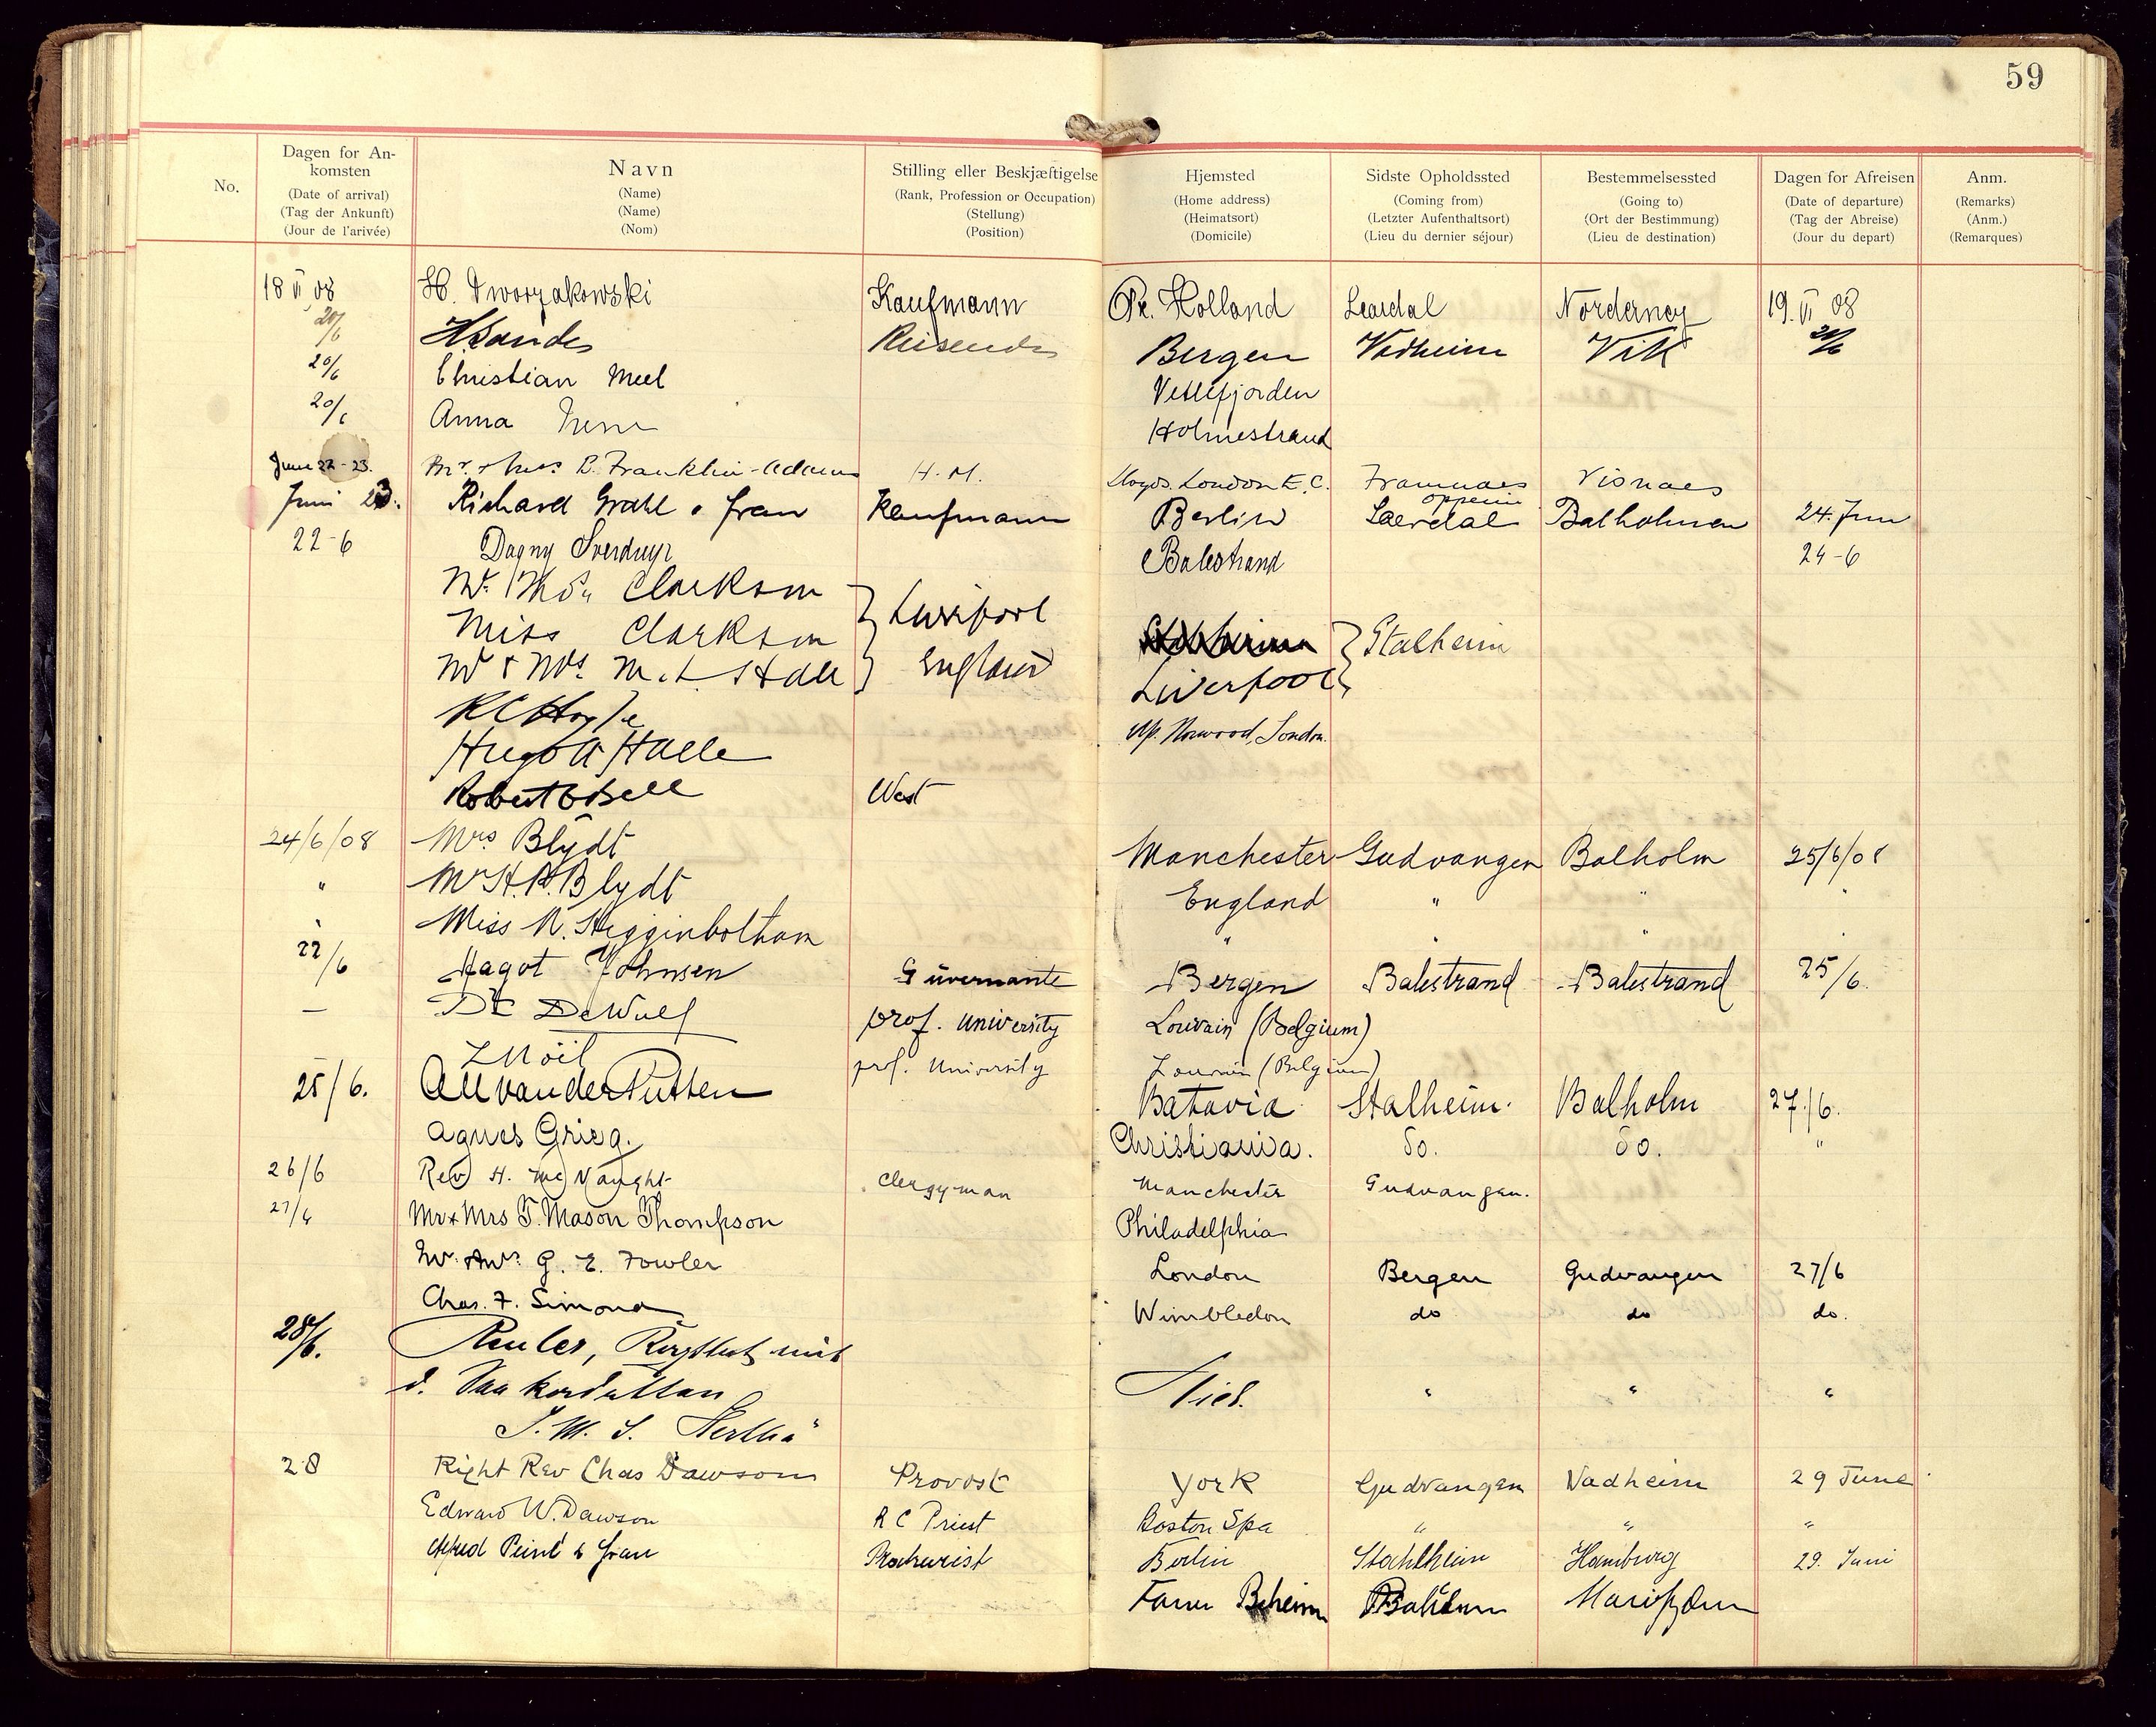 59
No.
Dagen for An-
komsten
(Date of arrival)
(Tag der Ankunft)
(Jour de l'arivée)
Navn
(Name)
(Name)
(Nom)
Stilling eller Beskjæftigelse
(Rank, Profession or Occupation)
(Stellung)
(Position)
Hjemsted
(Home address)
(Heimatsort)
(Domicile)
Sidste Opholdssted
(Coming from)
(Letzter Aufenthaltsort)
(Lieu du dernier séjour)
Bestemmelsessted
(Going to)
(Ort der Bestimmung)
(Lieu de destination)
Dagen for Afreisen
(Date of departure)
(Tag der Abreise)
(Jour du depart)
Anm.
(Remarks)
(Anm.)
(Remarques)
18 VI 08 H. Dworzakowski Kaufmann Pr. Holland Leardal Norderney 19. VI 08
20/6 Bergen Vadheim Vik
20/6 Christian Meel Vetlefjorden
20/6 Anna Holmestrand
June 22-23. Mr. & Mrs B. Franklin-Adams H. M. Lloyds. London E.C. Framnaes Visnaes
Juni 23. Richard Grahl & frau Kaufmann Berlin Laerdal Balholmen 24. Jun
22-6 Dagny Sverdrup Balestrand 24-6
Mr. Thos. Clarkson
Miss Clarkson Liverpool Stalheim
Mr & Mrs. M. L. Hall England Liverpool
R C Hoyle
Up. Norwood, London.
Hugo Halle
Robert Bell West
24/6/08 Mrs Blydt Manchester Gudvangen Balholm 25/6/08
" Mr H. A. Blydt England " " "
" Miss N. Higginbottom " " " "
22/6 Magot Johnsen Guvernante Bergen Balestrand Balestrand 25/6.
— Dr De Wulf prof. University Louvain (Belgium)
L Noël prof. University Louvain (Belgium)
25/6. van der Putten Batavia Stalheim. Balholm 27/6.
Agnes Grieg. Christiania. Do. Do. "
26/6 Rev H. McNaught clergyman Manchester Gudvangen.
27/6 Mr & Mrs T. Mason Thompson Philadelphia
Mr. & Mrs. G. E. Fowler London Bergen Gudvangen 27/6
Chas. F. Simond Wimbledon do do do.
28/6. mit
d.
S. M. S. Hertha" Kiel. " " "
28 Right Rev Chas Dawson Provost York Gudvangen Vadheim 29 June
Edward W. Dawson R C Priest Boston Spa " " "
Alfred & frau Prokurist Berlin Stahlheim Hamburg 29. Juni